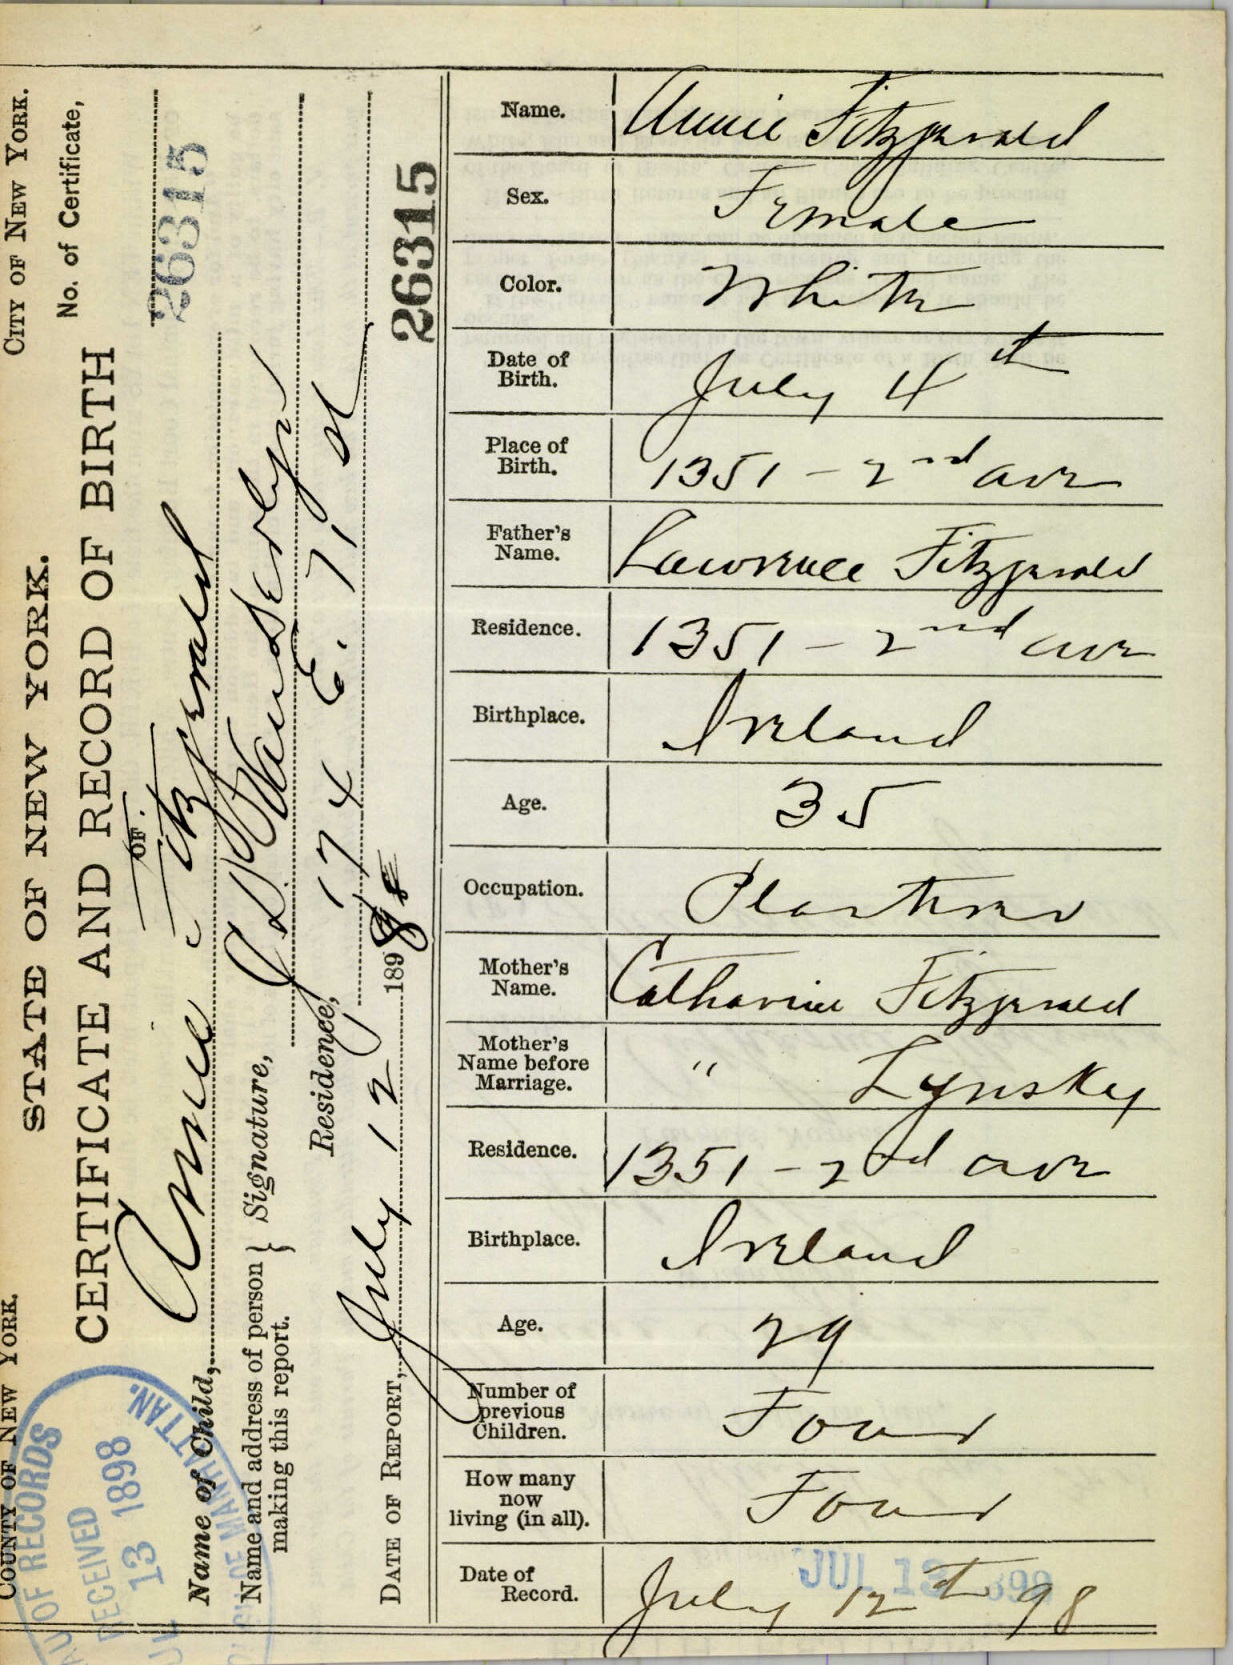 COUNTY OF NEW YORK. CITY OF NEW YORK.
STATE OF NEW YORK.
No. of Certificate,
CERTIFICATE AND RECORD OF BIRTH
26315
OF
Name of Child, Annie Fitzgerald
Name and address of person making this report. } Signature,
Residence, 174 E. 71 st
DATE OF REPORT, July 12 1898
26315
BUREAU OF RECORDS
RECEIVED
JUL 13 1898
OF MANHATTAN.
Name. Annie Fitzgerald
Sex. Female
Color. White
Date of Birth. July 4th
Place of Birth. 1351 - 2nd ave
Father's Name. Lawrence Fitzgerald
Residence. 1351 - 2nd ave
Birthplace. Ireland
Age. 35
Occupation. Plasterer
Mother's Name. Catharine Fitzgerald
Mother's Name before Marriage. " Lynskey
Residence. 1351 - 2nd ave
Birthplace. Ireland
Age. 29
Number of previous Children. Four
How many now living (in all). Four
Date of Record. July 12th 98
JUL 13 1898